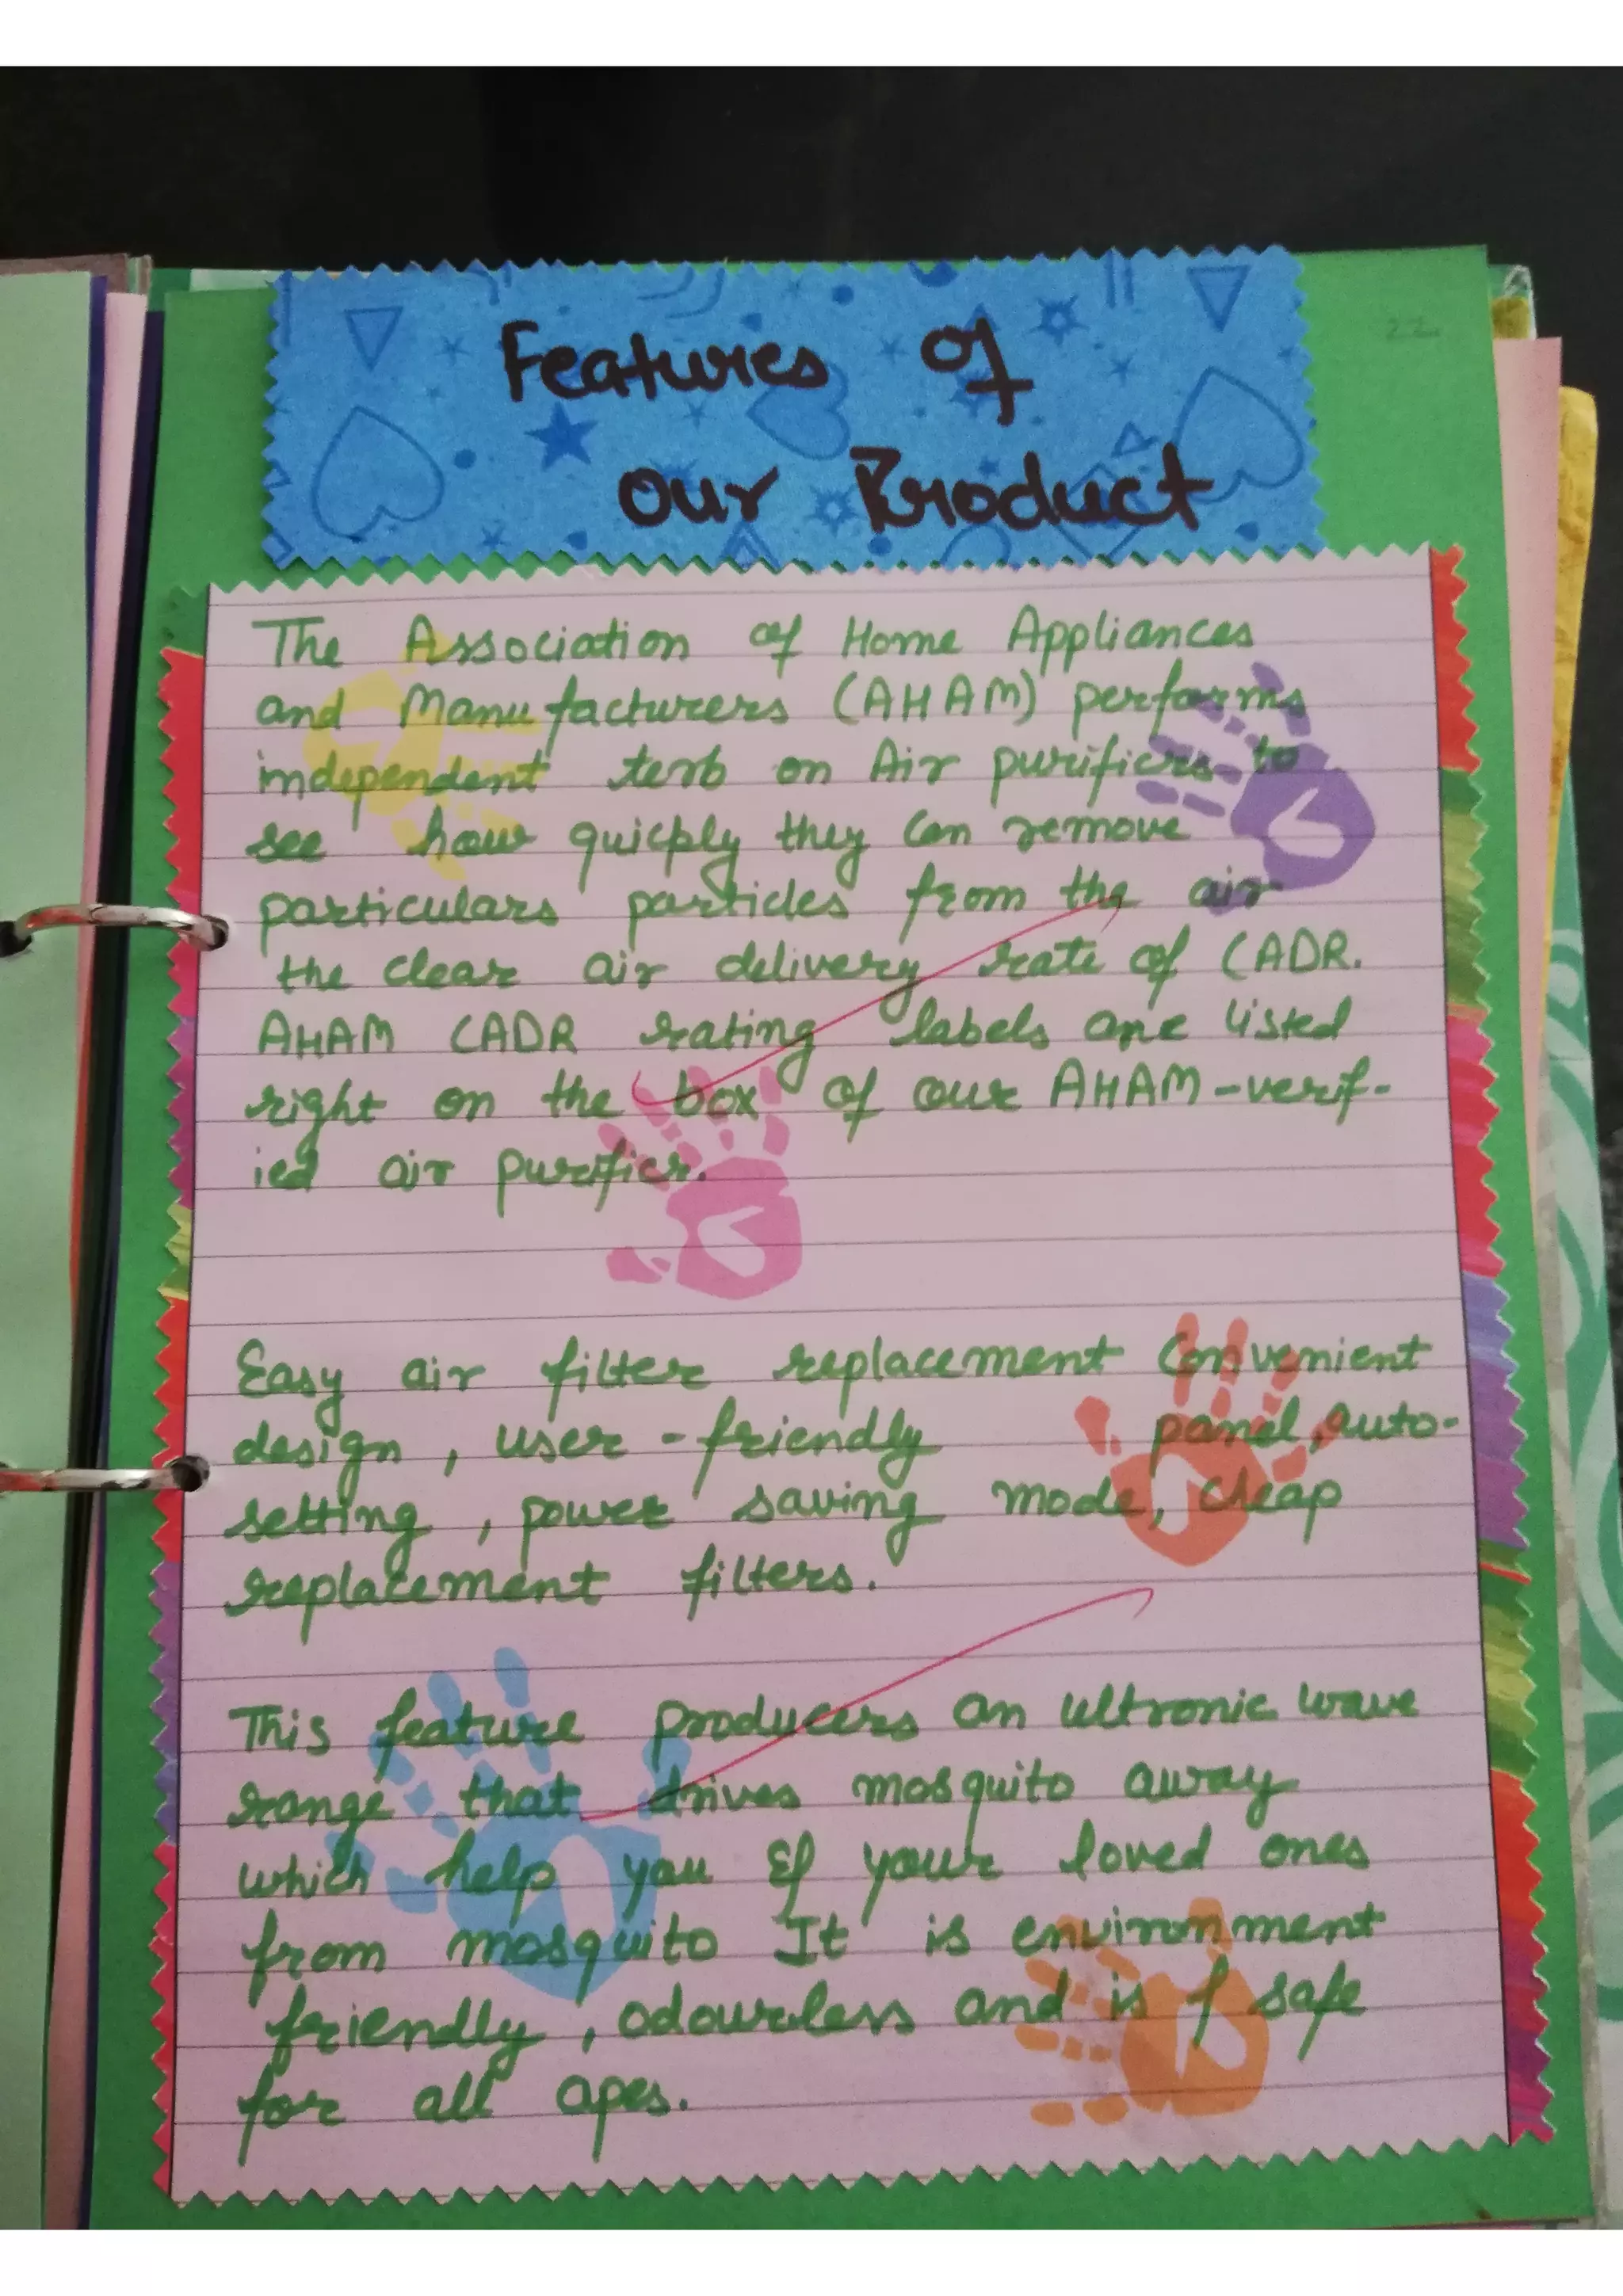 22
Features of
Our Product
The Association of Home Appliances
and Manufacturers (AHAM) performs
independent tests on Air purifiers to
see how quickly they can remove
particulars particles from the air
the clear air delivery rate of CADR.
AHAM CADR rating labels are listed
right on the box of our AHAM-verif-
ied air purifier.
Easy air filter replacement convenient
design, user-friendly panel, auto-
setting, power saving mode, cheap
replacement filters.
This feature producers an ultronic wave
range that drives mosquito away
which help you & your loved ones
from mosquito It is environment
friendly, odourless and is safe
for all apes.